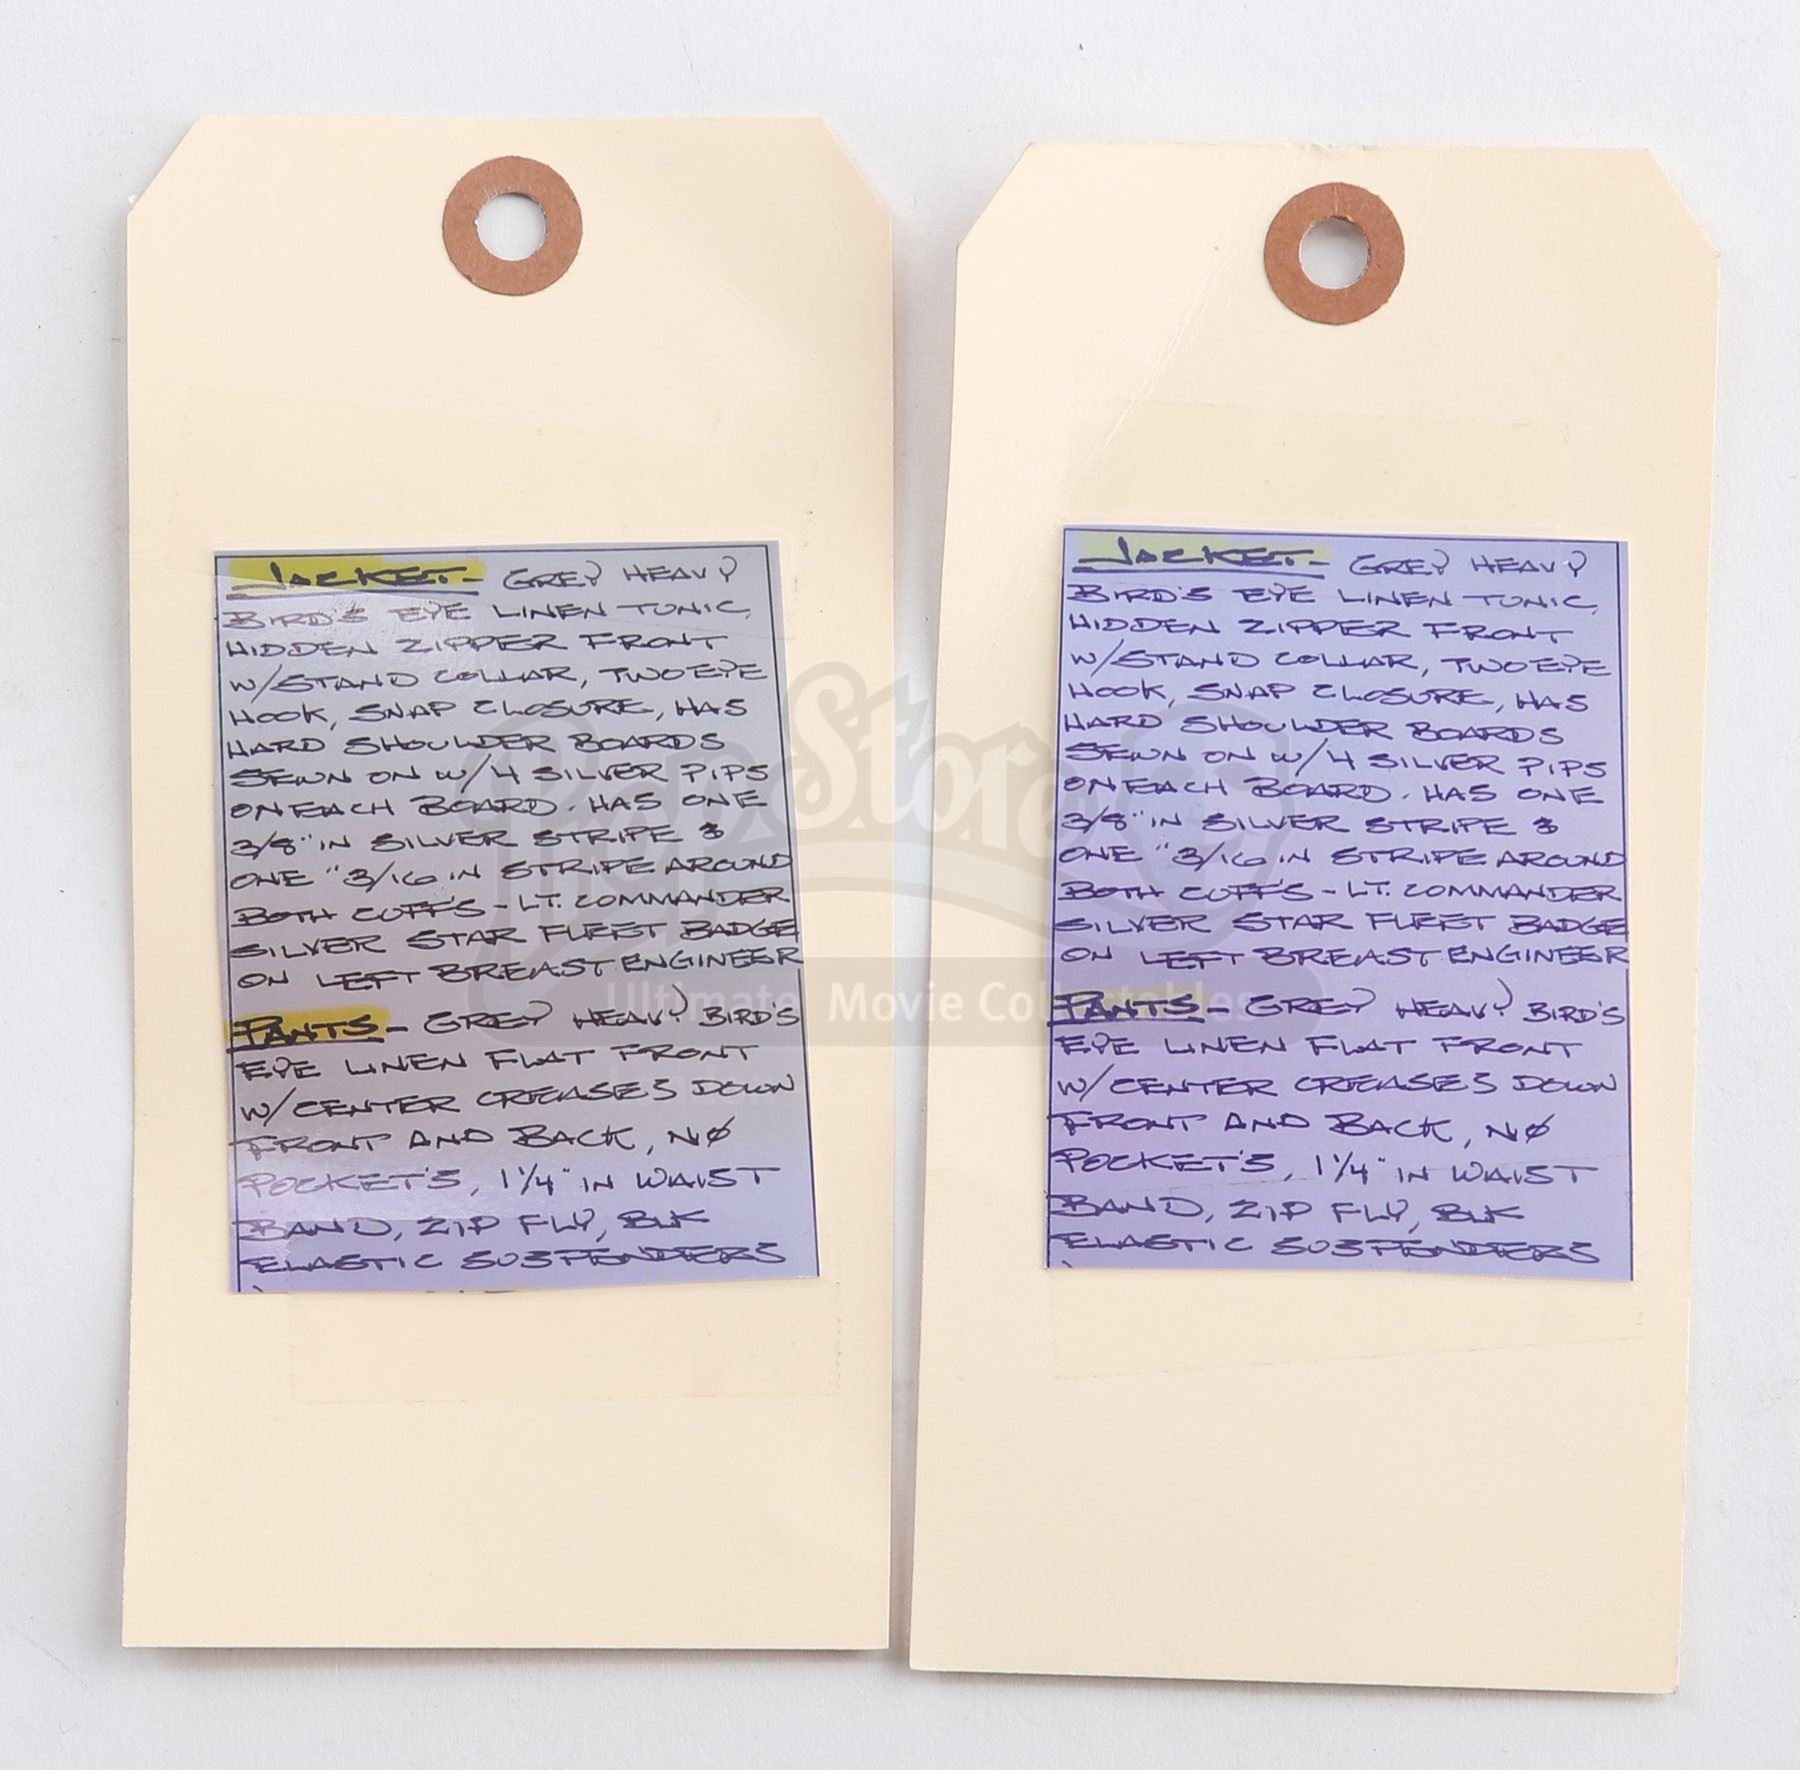 JACKET- GREY HEAVY
BIRD'S EYE LINEN TUNIC,
HIDDEN ZIPPER FRONT
W/STAND COLLAR, TWO EYE
HOOK, SNAP CLOSURE, HAS
HARD SHOULDER BOARDS
SEWN ON W/4 SILVER PIPS
ON EACH BOARD. HAS ONE
3/8" IN SILVER STRIPE &
ONE "3/16 IN STRIPE AROUND
BOTH CUFF'S - LT. COMMANDER
SILVER STAR FLEET BADGE
ON LEFT BREAST ENGINEER
PANTS- GREY HEAVY BIRD'S
EYE LINEN FLAT FRONT
W/CENTER CREASES DOWN
FRONT AND BACK, NØ
POCKET'S, 1 1/4" IN WAIST
BAND, ZIP FLY, BLK
ELASTIC SUSPENDERS
JACKET- GREY HEAVY
BIRD'S EYE LINEN TUNIC,
HIDDEN ZIPPER FRONT
W/STAND COLLAR, TWO EYE
HOOK, SNAP CLOSURE, HAS
HARD SHOULDER BOARDS
SEWN ON W/4 SILVER PIPS
ON EACH BOARD. HAS ONE
3/8" IN SILVER STRIPE &
ONE "3/16 IN STRIPE AROUND
BOTH CUFF'S - LT. COMMANDER
SILVER STAR FLEET BADGE
ON LEFT BREAST ENGINEER
PANTS- GREY HEAVY BIRD'S
EYE LINEN FLAT FRONT
W/CENTER CREASES DOWN
FRONT AND BACK, NØ
POCKET'S, 1 1/4" IN WAIST
BAND, ZIP FLY, BLK
ELASTIC SUSPENDERS
Prop Store
Ultimate Movie Collectables